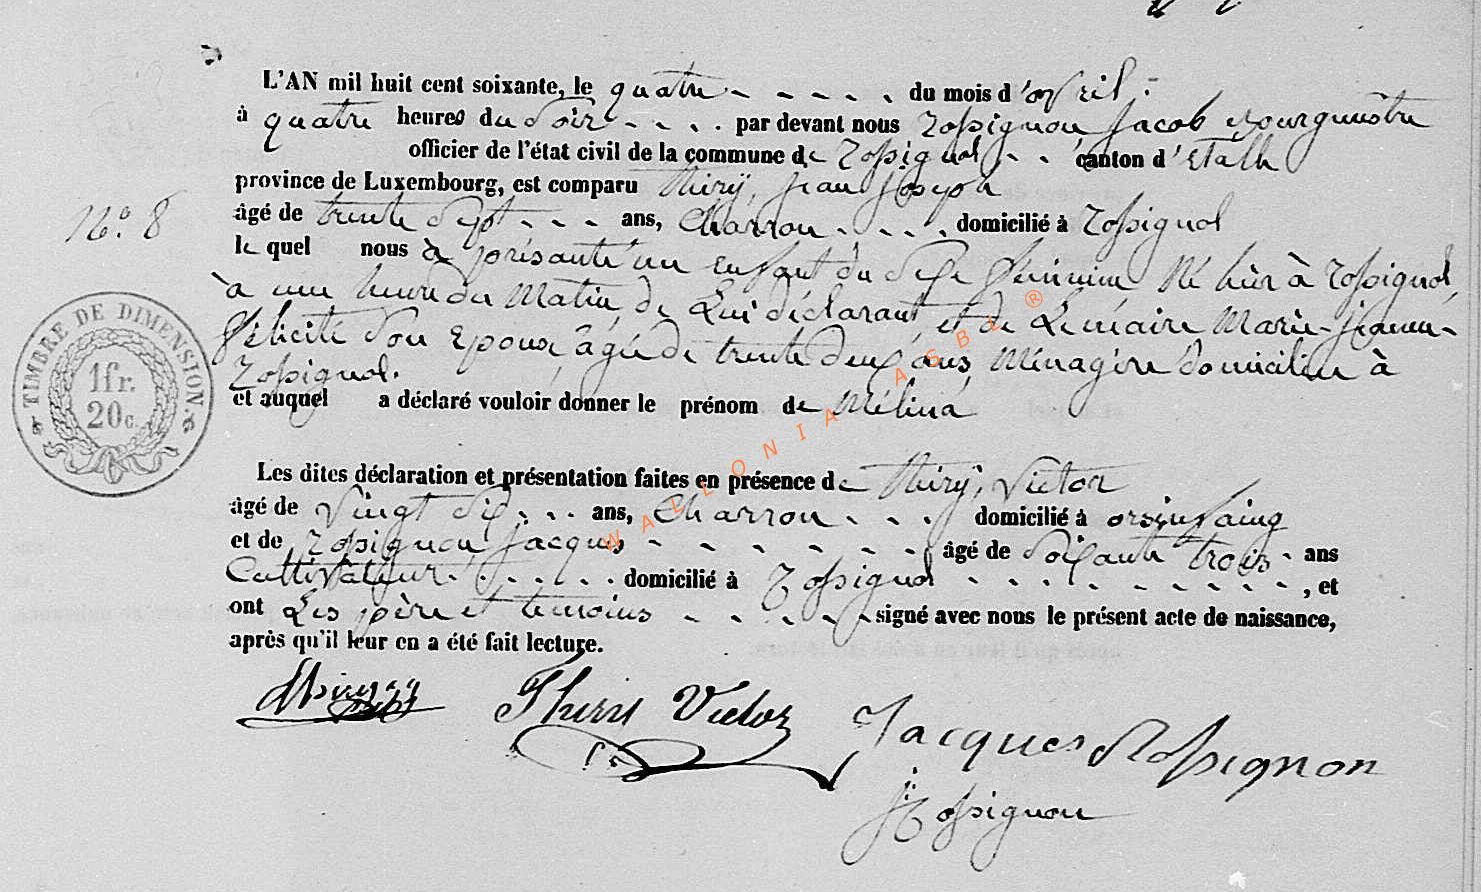 L'AN mil huit cent soixante, le quatre - - - - - du mois d'avril -
à quatre heures du soir - - - - par devant nous Rossignon Jacob Bourgmestre
officier de l'état civil de la commune de Rossignol - - canton d'Etalle
province de Luxembourg, est comparu Thiry, Jean Joseph
N°. 8
âgé de trente sept - - - ans, Charron - - - - domicilié à Rossignol
le quel nous à présenté un enfant du sexe féminin Né hier à Rossignol,
à une heure du Matin, de Lui déclarant, et de Lemaire Marie-Jeanne-
Félicité son Epouse, âgée de trente deux ans, Ménagère domiciliée à
Rossignol.
TIMBRE DE DIMENSION.
1 fr.
20 c.
et auquel a déclaré vouloir donner le prénom de Mélina
Les dites déclaration et présentation faites en présence de Thiry, Victor
âgé de vingt six - - - ans, Charron - - - - domicilié à orsinfaing
et de Rossignon Jacques - - - - - - - âgé de soixante trois - ans
Cultivateur - - - - - domicilié à Rossignol - - - - - - - - - , et
ont Les père et temoins - - - - - signé avec nous le présent acte de naissance,
après qu'il leur en a été fait lecture.
Thiry Victor
Jacques Rossignon
J: Rossignon
WALLONIA ASBL ®